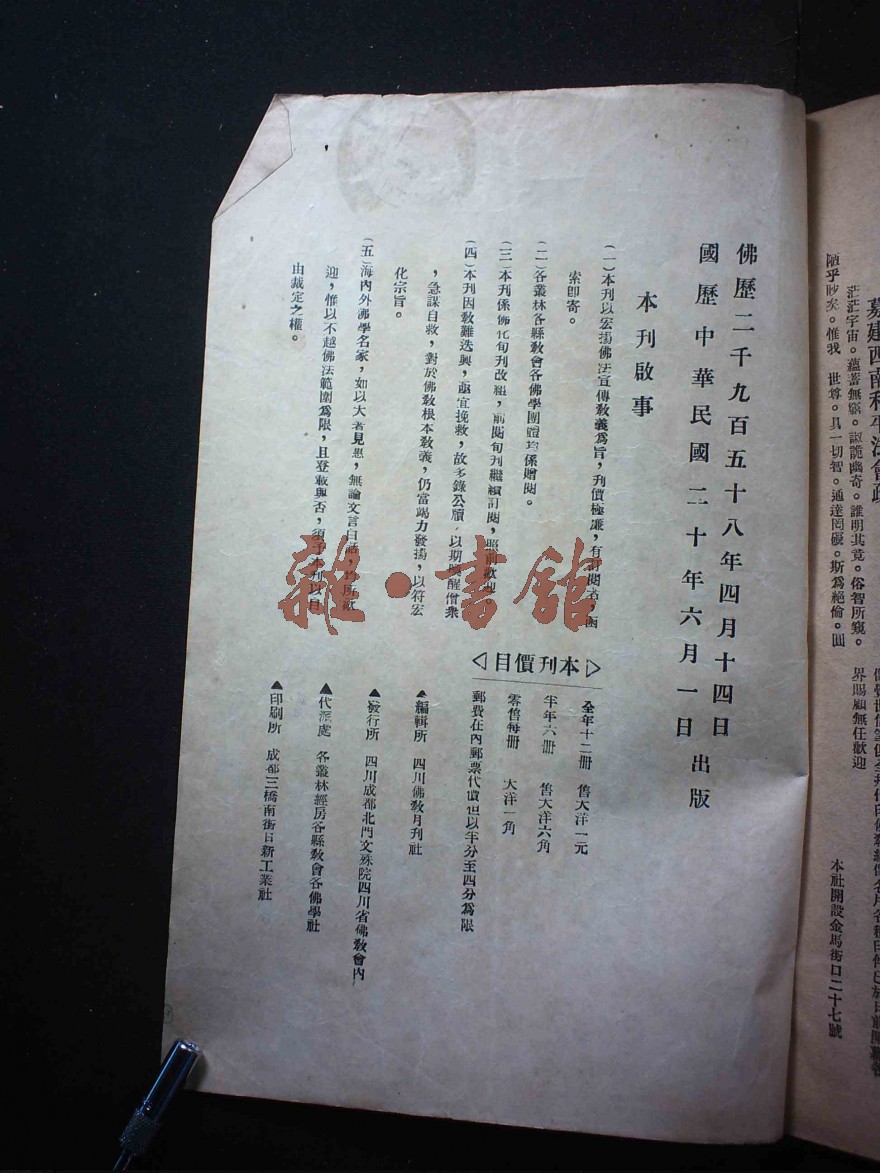 佛歷二千九百五十八年四月十四日
國歷中華民國二十年六月一日出版
本刊啟事
(一)本刊以宏揚佛法宣傳敎義爲旨，刋價極廉，有訂閱者，函
索卽寄。
(二)各叢林各縣敎會各佛學團體均係贈閱。
(三)本刊係佛化旬刊改組，前閱旬刊繼續訂閱，照前歡迎。
(四)本刊因敎難迭興，亟宜挽救，故多錄公牘，以期喚醒僧衆
，急謀自救，對於佛敎根本敎義，仍當竭力發揚，以符宏
化宗旨。
(五)海內外佛學名家，如以大著見惠，無論文言白話，均所歡
迎，惟以不越佛法範圍爲限，且登載與否，須予本刊以自
由裁定之權。
▷本刊價目◁
全年十二册　售大洋一元
半年六册　售大洋六角
零售每册　大洋一角
郵費在內郵票代價但以半分至四分爲限
▲編輯所　四川佛敎月刊社
▲發行所　四川成都北門文殊院四川省佛敎會內
▲代派處　各叢林經房各縣敎會各佛學社
▲印刷所　成都三橋南街日新工業社
雜·書館
募建西南和平法會疏
茫茫宇宙。蘊蓄無窮。諔詭幽奇。誰明其竟。俗智所窺。
陋乎眇矣。惟我　世尊。具一切智。通達罔礙。斯爲絕倫。圓
界賜顧無任歡迎
本社開設金馬街口二十七號